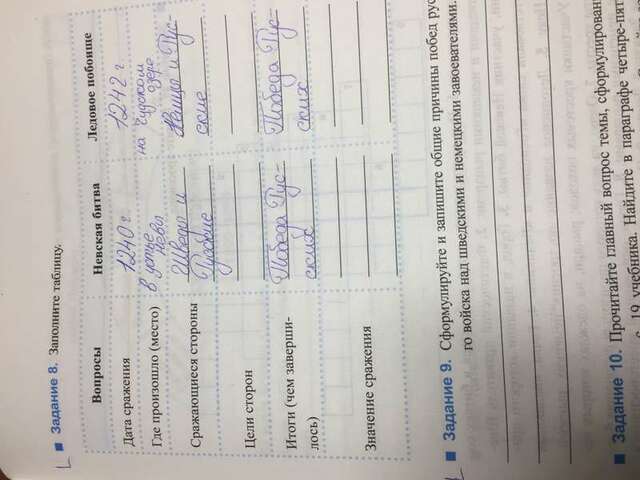 Задание 8. Заполните таблицу.
Вопросы Невская битва Ледовое побоище
Дата сражения 1240 г. 1242 г
Где произошло (место) в устье Невы на Чудском озере
Сражающиеся стороны Шведы и Русские Немцы и Рус-
ские
Цели сторон
Итоги (чем заверши-
лось) Победа Рус-
ских Победа Рус-
ских
Значение сражения
Задание 9. Сформулируйте и запишите общие причины побед рус
го войска над шведскими и немецкими завоевателями.
Задание 10. Прочитайте главный вопрос темы, сформулирован
19 учебника. Найдите в параграфе четыре-пят